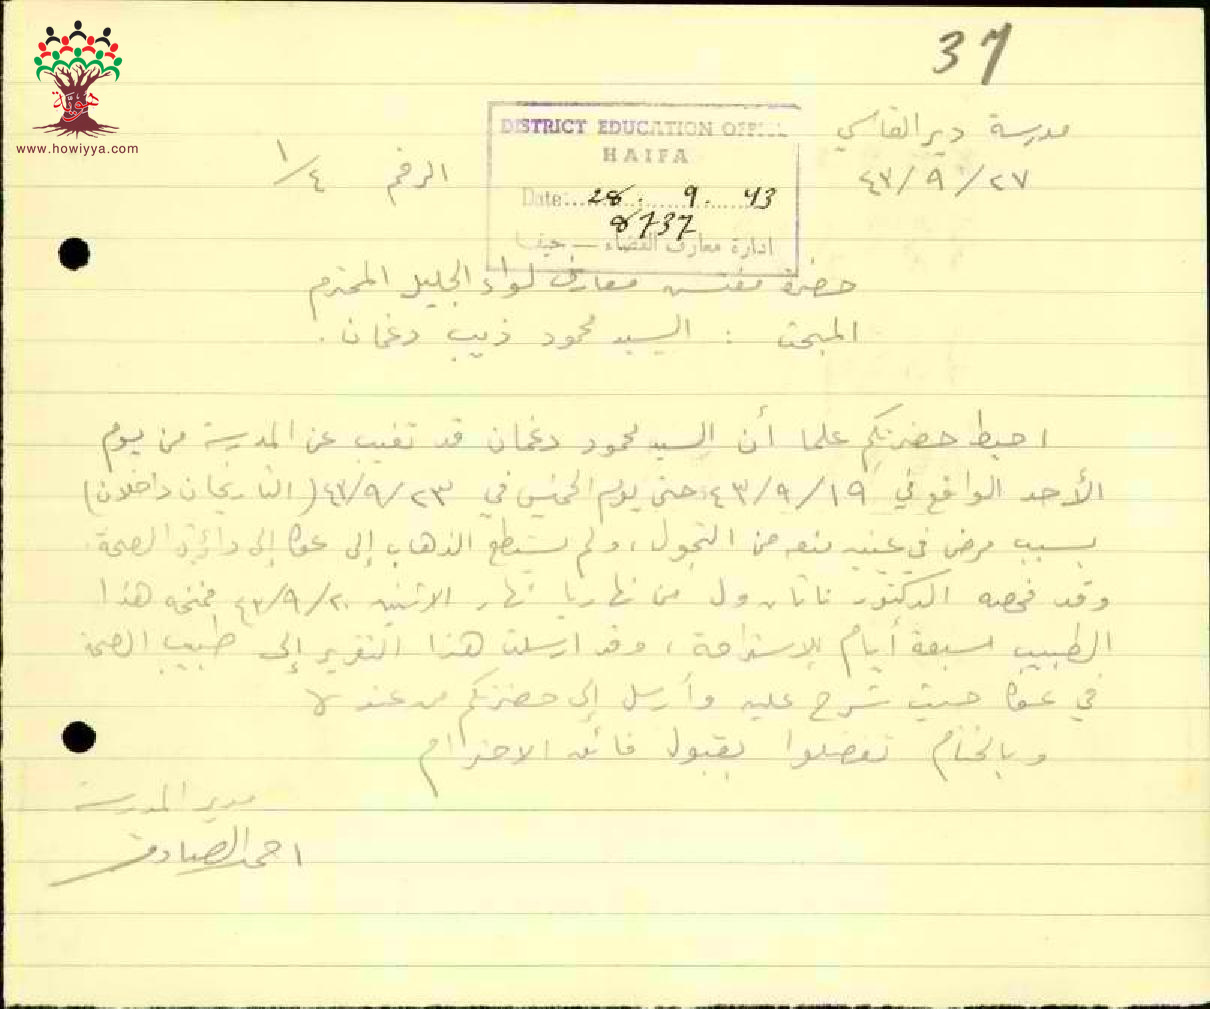 37
هوية
www.howiyya.com
مدرسة دير القاسي
٢٧/٩/٤٣
DISTRICT EDUCATION OFFICE
HAIFA
Date: 28. 9. 43
8737
ادارة معارف القضاء — حيفا
الرقم ١/٤
حضرة مفتش معارف لواء الجليل المحترم
المبحث : السيد محمود ذيب دغمان .
احيط حضرتكم علما أن السيد محمود دغمان قد تغيب عن المدرسة من يوم
الأحد الواقع في ١٩/٩/٤٣ حتى يوم الخميس في ٢٣/٩/٤٣ (التاريخان داخلان)
بسبب مرض في عينيه منعه من التجول ، ولم يستطع الذهاب إلى عكا إلى دائرة الصحة .
وقد فحصه الدكتور من نهاريا نهار الاثنين ٢٠/٩/٤٣ فمنحه هذا
الطبيب سبعة أيام للاستراحة ، وقد ارسلت هذا التقرير إلى طبيب الصحة
في عكا حيث شرح عليه وأرسل إلى حضرتكم من عنده
وبالختام تفضلوا بقبول فائق الاحترام
مدير المدرسة
احمد الصادق